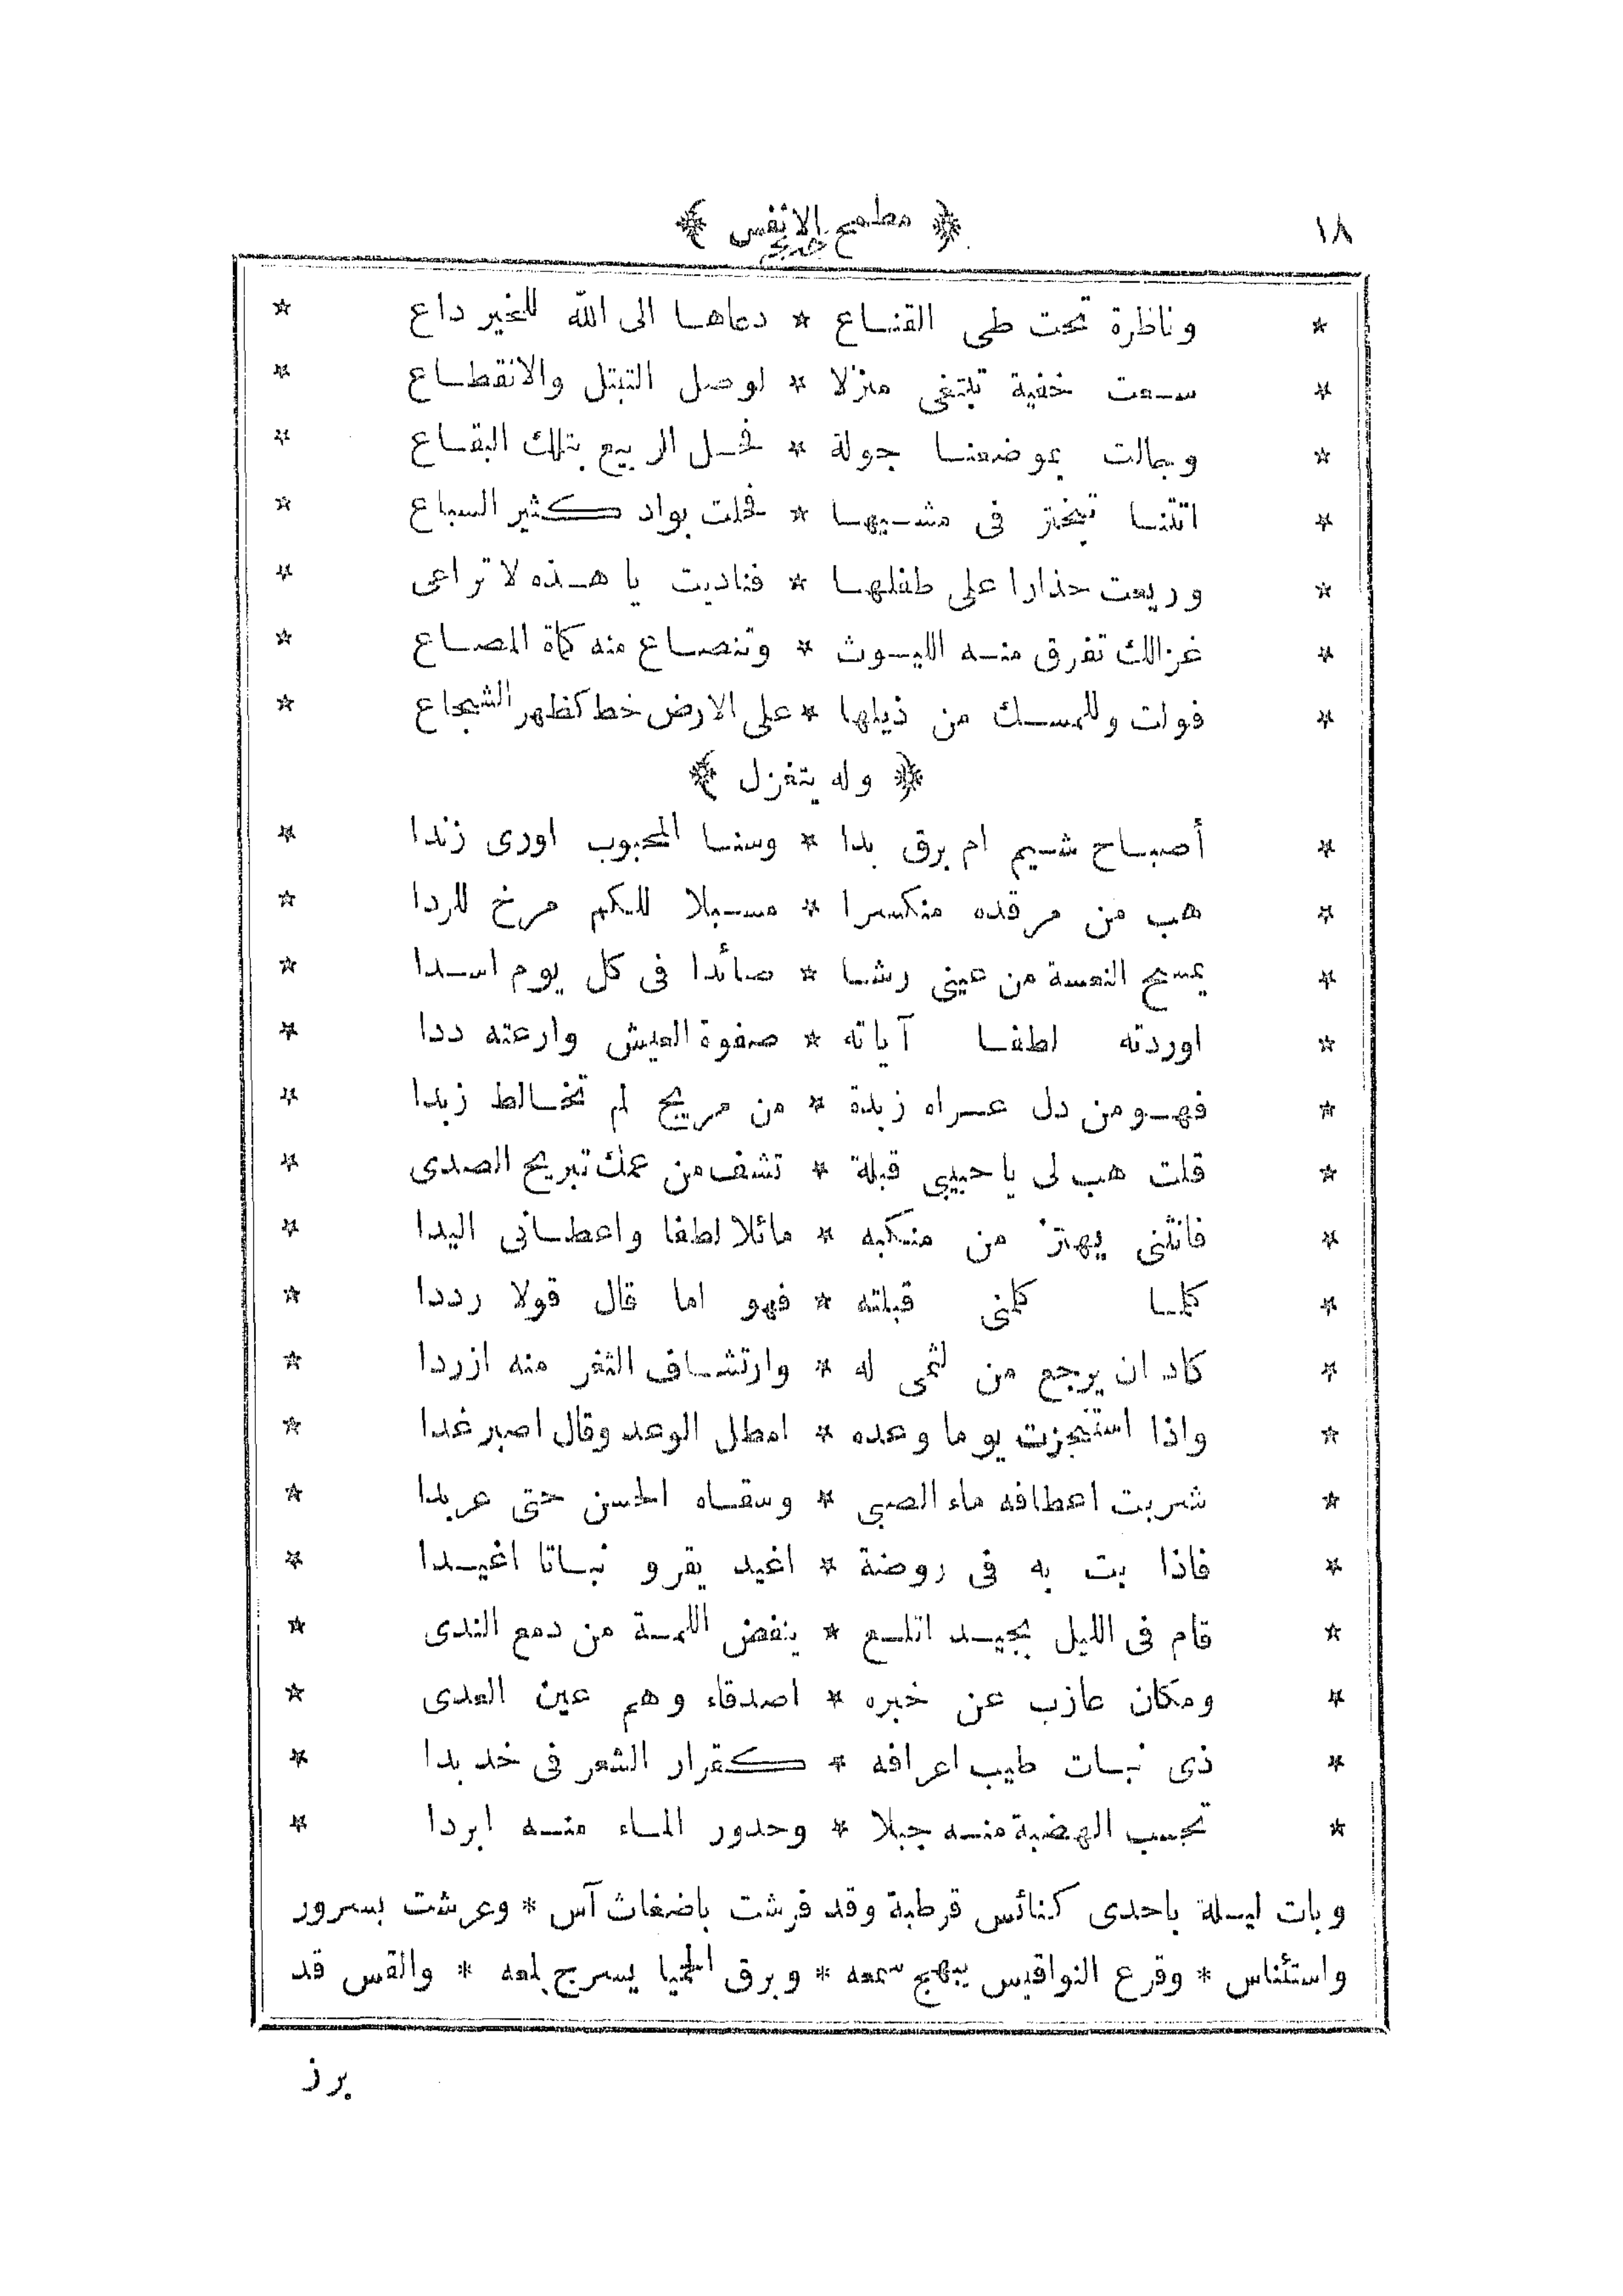 ١٨
﴿ مطمح الانفس ﴾
* وناظرة تحت طى القناع * دعاها الى الله للخير داع *
* سعت خفية تبتغى منزلا * لوصل التبتل والانقطاع *
* وجالت بموضعنا جولة * فحل الربيع بتلك البقاع *
* اتتنا تبختر فى مشيها * فحلت بواد كثير السباع *
* وريعت حذارا على طفلها * فناديت يا هذه لا تراعى *
* غزالك تفرق منه الليوث * وتنصاع منه كماة المصاع *
* فولت وللمسك من ذيلها * على الارض خط كظهر الشجاع *
﴿ وله يتغزل ﴾
* أصباح شيم ام برق بدا * وسنا المحبوب اورى زندا *
* هب من مرقده منكسرا * مسبلا للكم مرخ للردا *
* يمسح النعسة من عينى رشا * صائدا فى كل يوم اسدا *
* اوردته لطفا آياته * صفوة العيش وارعته ددا *
* فهو من دل عراه زبدة * من مريج لم تخالط زبدا *
* قلت هب لى يا حبيبى قبلة * تشف من عمك تبريح الصدى *
* فانثنى يهتز من منكبه * مائلا لطفا واعطانى اليدا *
* كلما كلمنى قبلته * فهو اما قال قولا رددا *
* كاد ان يرجع من لثمى له * وارتشاف الثغر منه ازردا *
* واذا استنجزت يوما وعده * امطل الوعد وقال اصبر غدا *
* شربت اعطافه ماء الصبى * وسقاه الحسن حتى عربدا *
* فاذا بت به فى روضة * اغيد يقرو نباتا اغيدا *
* قام فى الليل بجيد اتلع * ينفض اللمة من دمع الندى *
* ومكان عازب عن خبره * اصدقاء وهم عين العدى *
* ذى نبات طيب اعرافه * كقرار الشعر فى خد بدا *
* تحسب الهضبة منه جبلا * وحدور الماء منه ابردا *
وبات ليلة باحدى كنائس قرطبة وقد فرشت باضغاث آس * وعرشت بسرور
واستئناس * وقرع النواقيس يبهج سمعه * وبرق الحميا يسرج لمعه * والقس قد
برز